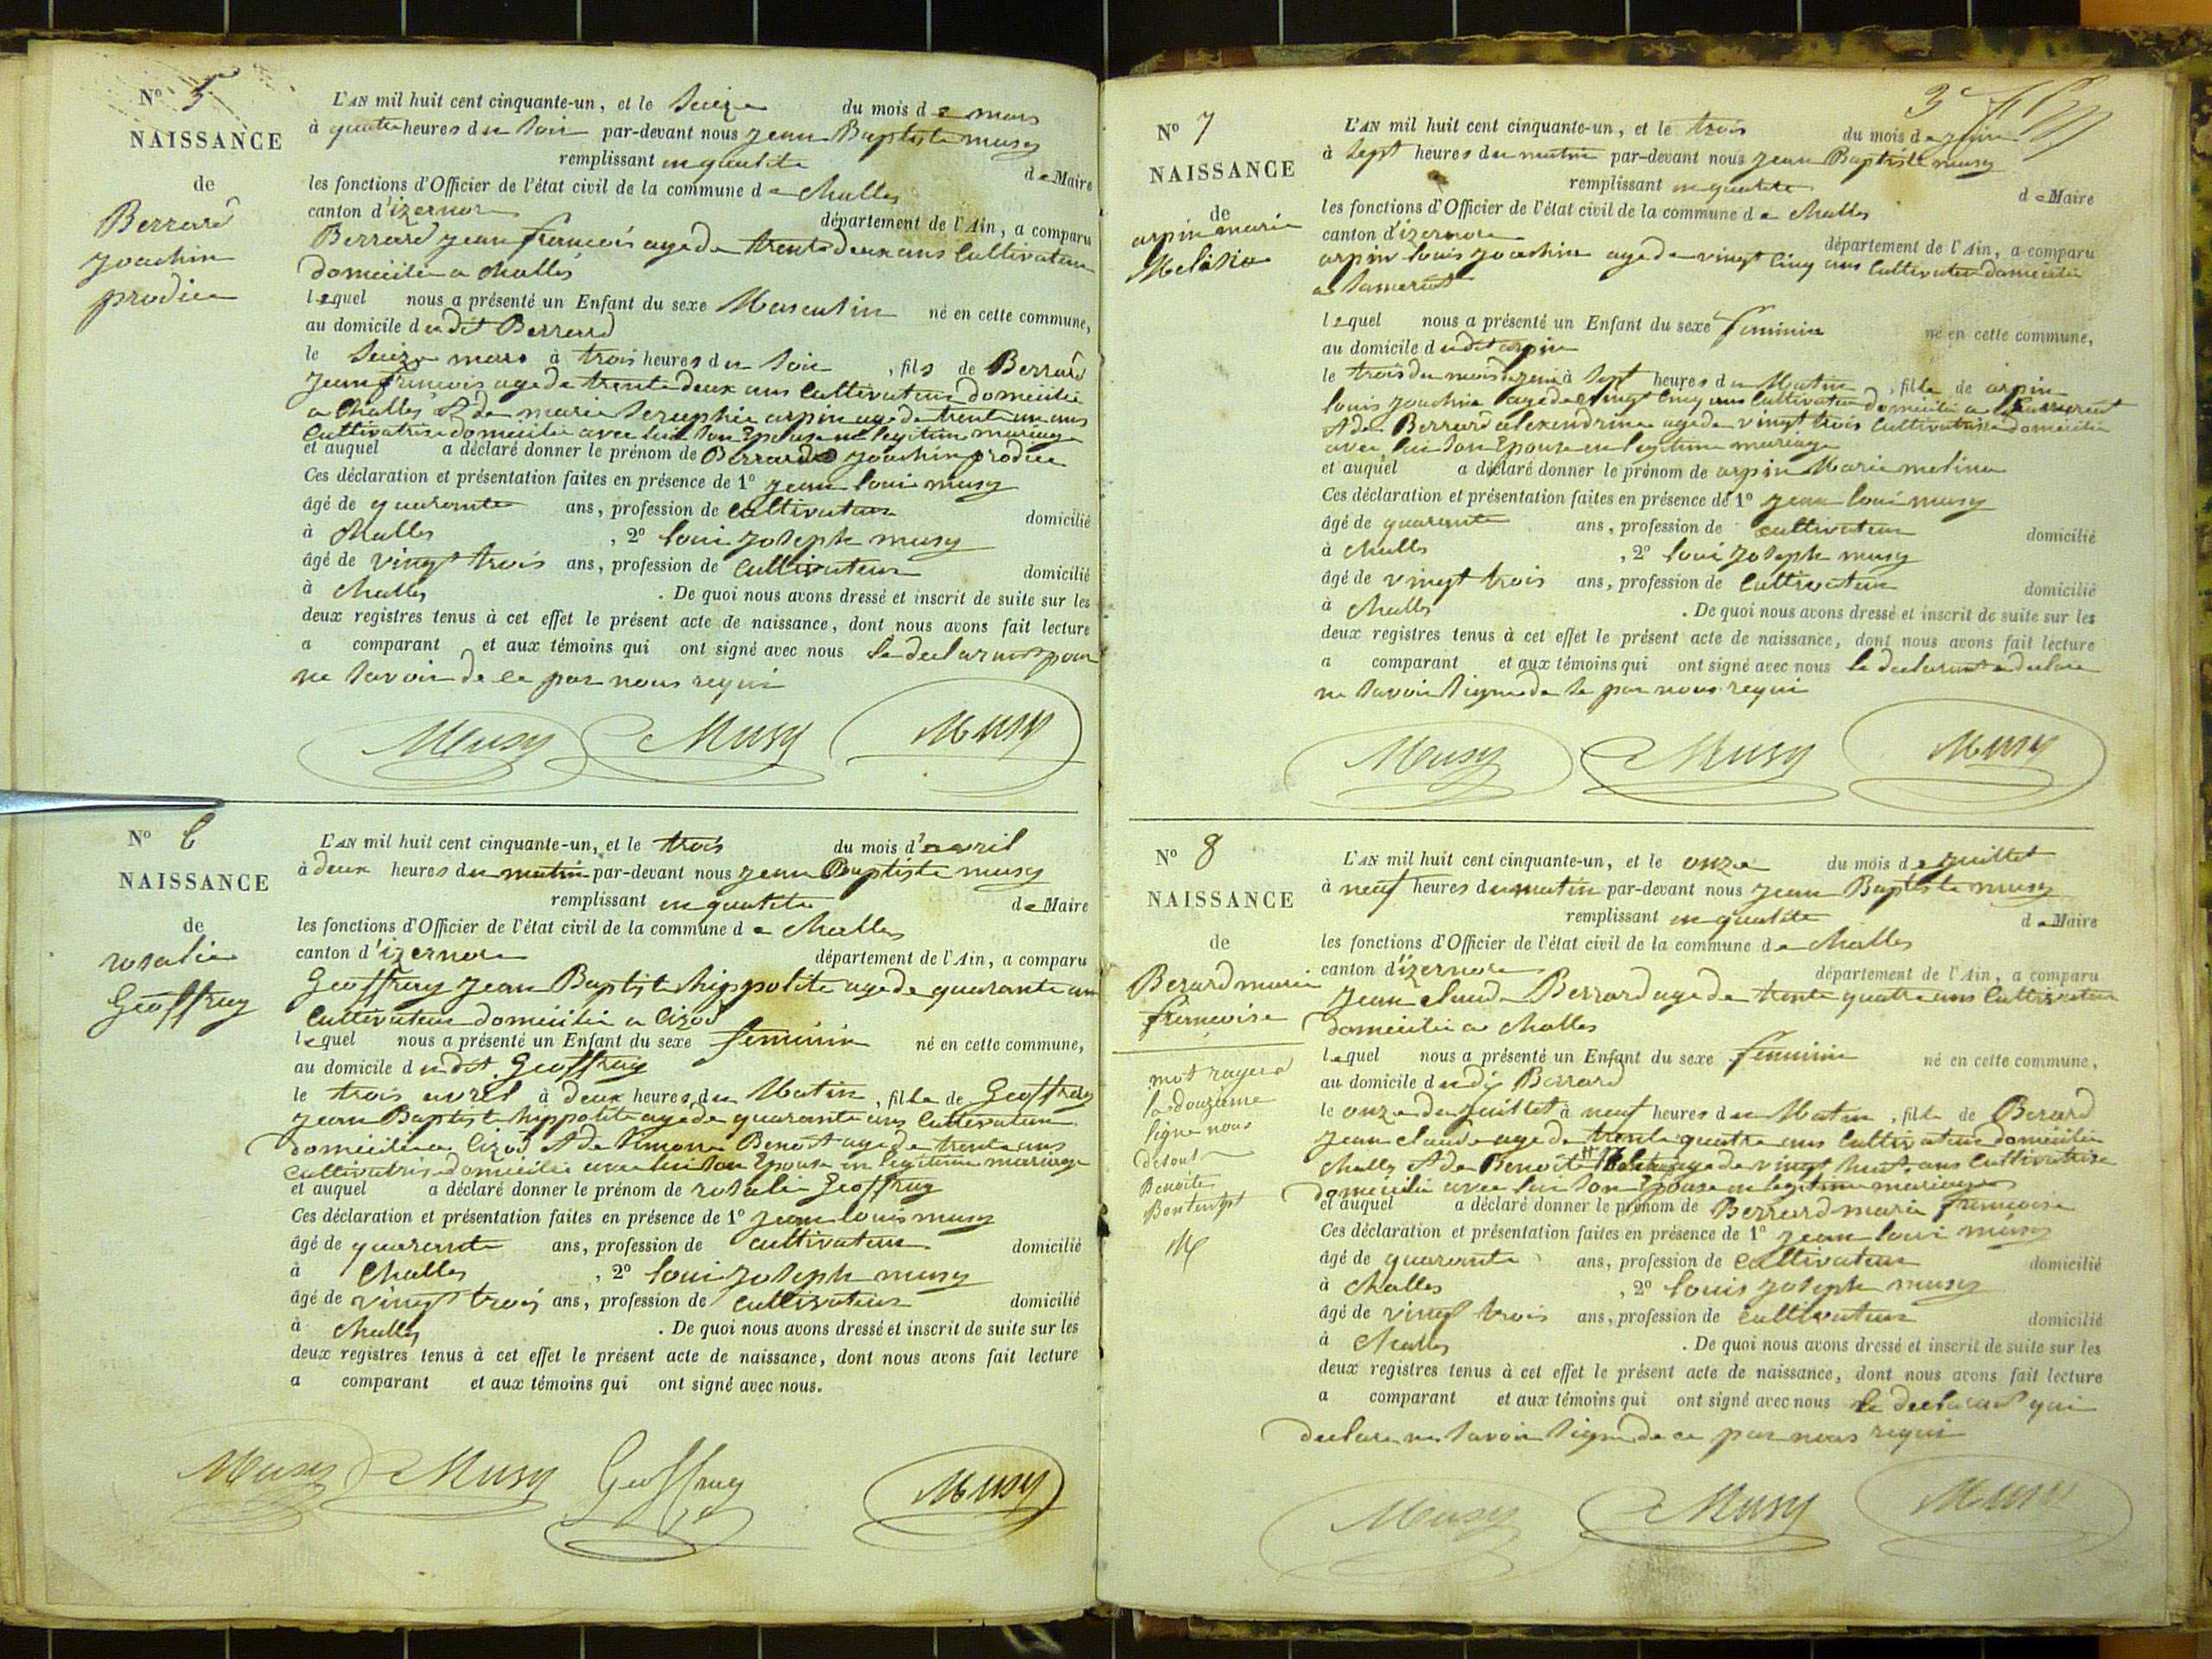 N° 5
NAISSANCE
de
Berrard
joachin
prodice
L'AN mil huit cent cinquante-un, et le Seize du mois de mars
à quatre heures du Soir par-devant nous jean Baptiste musy
remplissant en qualite de Maire
les fonctions d'Officier de l'état civil de la commune de Challes
canton d'izernore département de l'Ain, a comparu
Berrard jean francois age de trente deux ans Cultivateur
domicilié a Challes
lequel nous a présenté un Enfant du sexe Masculin né en cette commune,
au domicile du dit Berrard
le Seize mars à trois heures du Soir, fils de Berrard
jean francois age de trente deux ans Cultivateur domicilie
a Challes & de marie Seraphie arpin age de trente un ans
Cultivatrise domicilie avec lui Son Epouse en legitime mariage
et auquel a déclaré donner le prénom de Berrard joachin prodice
Ces déclaration et présentation faites en présence de 1° jean loui musy
âgé de quarente ans, profession de Cultivateur domicilié
à Challes, 2° loui joseph musy
âgé de vingt trois ans, profession de Cultivateur domicilié
à Challes. De quoi nous avons dressé et inscrit de suite sur les
deux registres tenus à cet effet le présent acte de naissance, dont nous avons fait lecture
a comparant et aux témoins qui ont signé avec nous le declarant pour
ne Savoir de ce par nous requi
Musy Musy Musy
N° 6
NAISSANCE
de
rosalie
Geoffray
L'AN mil huit cent cinquante-un, et le trois du mois d'avril
à deux heures du matin par-devant nous jean Baptiste musy
remplissant en qualite de Maire
les fonctions d'Officier de l'état civil de la commune de Challes
canton d'izernore département de l'Ain, a comparu
Geoffray jean Baptiste hippolite age de quarante un
Cultivateur domicilie a Cizod
lequel nous a présenté un Enfant du sexe feminin né en cette commune,
au domicile du dit Geoffray
le trois avril à deux heures du Matin, fille de Geoffray
jean Baptiste hippolite age de quarante ans Cultivateur
domicilie a Cizod & de Simone Benoit age de trente ans
Cultivatrise domicilie avec lui Son Epouse en legitime mariage
et auquel a déclaré donner le prénom de rosalie Geoffray
Ces déclaration et présentation faites en présence de 1° jean louis musy
âgé de quarente ans, profession de Cultivateur domicilié
à Challes, 2° loui joseph musy
âgé de vingt trois ans, profession de Cultivateur domicilié
à Challes. De quoi nous avons dressé et inscrit de suite sur les
deux registres tenus à cet effet le présent acte de naissance, dont nous avons fait lecture
a comparant et aux témoins qui ont signé avec nous.
Musy Musy Geoffray Musy
3e
N° 7
NAISSANCE
de
arpin marie
Melisia
L'AN mil huit cent cinquante-un, et le trois du mois de juin
à Sept heures du matin par-devant nous jean Baptiste musy
remplissant en qualite de Maire
les fonctions d'Officier de l'état civil de la commune de Challes
canton d'izernore département de l'Ain, a comparu
arpin louis joachin age de vingt Cinq ans Cultivateur domicilie
lequel nous a présenté un Enfant du sexe feminin né en cette commune,
au domicile du dit arpin
le trois du mois de juin à Sept heures du Matin, fille de arpin
louis joachin age de vingt Cinq ans Cultivateur domicilie a
& de Berrard alexendrine age de vingt trois Cultivatrise domicilie
avec lui Son Epouse en legitime mariage
et auquel a déclaré donner le prénom de arpin Marie melina
Ces déclaration et présentation faites en présence de 1° jean loui musy
âgé de quarente ans, profession de Cultivateur domicilié
à Challes, 2° loui joseph musy
âgé de vingt trois ans, profession de Cultivateur domicilié
à Challes. De quoi nous avons dressé et inscrit de suite sur les
deux registres tenus à cet effet le présent acte de naissance, dont nous avons fait lecture
a comparant et aux témoins qui ont signé avec nous le declarant a declare
ne Savoir Signe de Se par nous requi
Musy Musy Musy
N° 8
NAISSANCE
de
Berard marie
francoise
mot rayer a
la douzieme
ligne nous
disont
Benoite
Bontemps
M
L'AN mil huit cent cinquante-un, et le onze du mois de juillet
à neuf heures du matin par-devant nous jean Baptiste musy
remplissant en qualite de Maire
les fonctions d'Officier de l'état civil de la commune de Challes
canton d'izernore département de l'Ain, a comparu
jean claude Berrard age de trente quatre ans Cultivateur
domicilie a Challes
lequel nous a présenté un Enfant du sexe feminin né en cette commune,
au domicile du dij Berrard
le onze de juillet à neuf heures du Matin, fille de Berard
jean claude age de trente quatre ans Cultivateur domicilie
Challes & de Benoite age de vingt huit ans Cultivatrise
domicilie avec lui Son Epouse en legitime mariage
et auquel a déclaré donner le prénom de Berrard marie francoise
Ces déclaration et présentation faites en présence de 1° jean loui musy
âgé de quarente ans, profession de Cultivateur domicilié
à Challes, 2° louis joseph musy
âgé de vingt trois ans, profession de Cultivateur domicilié
à Challes. De quoi nous avons dressé et inscrit de suite sur les
deux registres tenus à cet effet le présent acte de naissance, dont nous avons fait lecture
a comparant et aux témoins qui ont signé avec nous le declarant qui
declare ne Savoir Signe de ce par nous requi
Musy Musy Musy